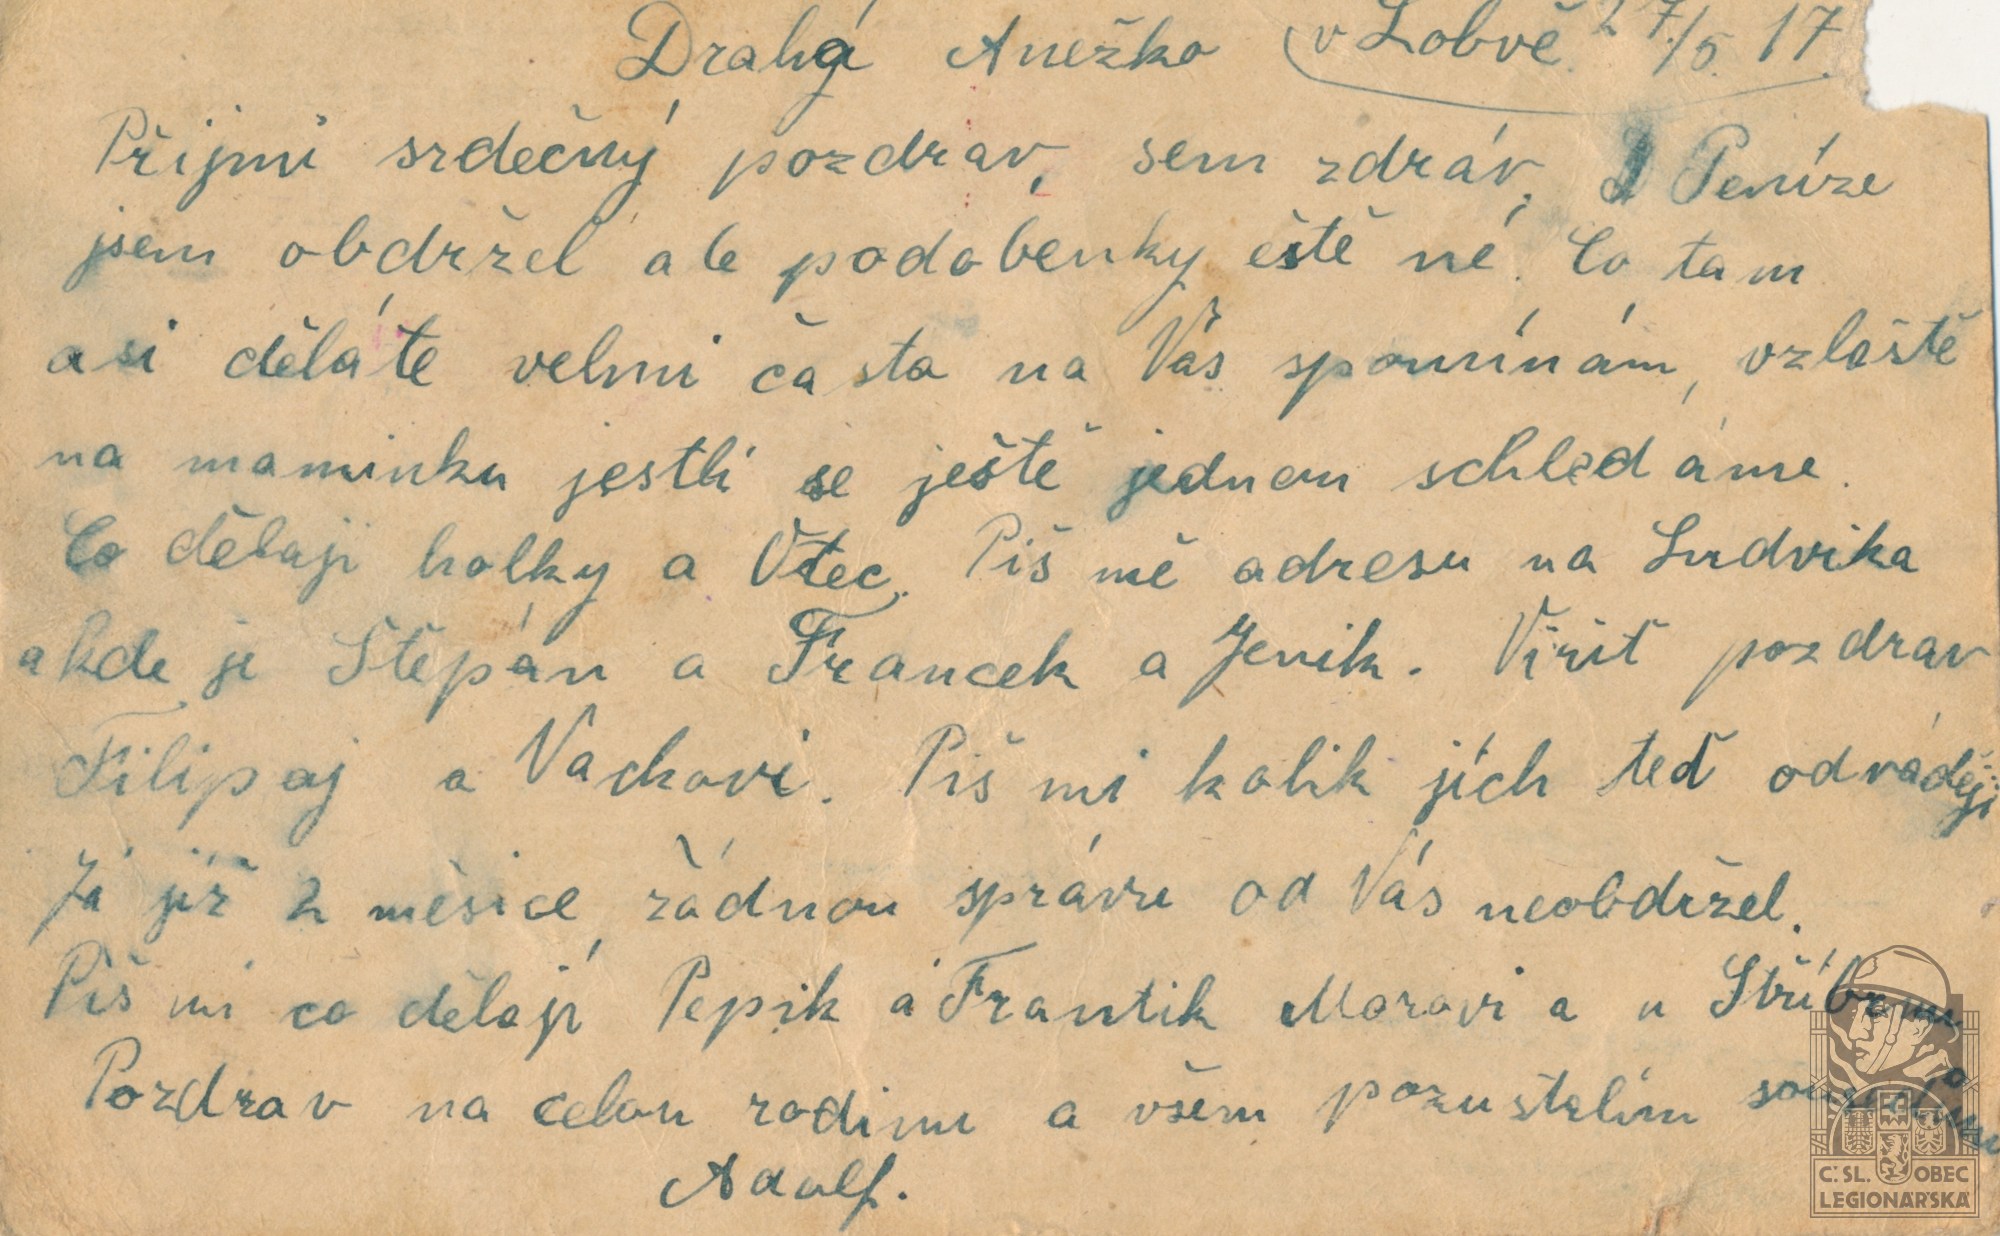 Drahá Anežko v Lobvě 27./5. 17.
Přijmi srdečný pozdrav, sem zdráv, Peníze
jsem obdržel ale podobenky eště né. Co tam
asi děláte velmi často na Vás spomínám, vzláště
na maminku jestli se ješte jednou schledáme.
Co dělaji holky a Otec. Piš mě adresu na Ludvika
a kde je Štěpán a Francek a Jenik. Viřit pozdrav
Filipoj a Vackovi. Piš mi kolik jích teď odvádějí
Já jíž 2 měsice žádnou správu od Vás neobdržel.
Piš mi co dělají Pepik a Frantik Morovi a u Stříbrnu
Pozdrav na celou rodinu a všem pozustalím
Adolf.
Č.SL. OBEC
LEGIONÁŘSKÁ